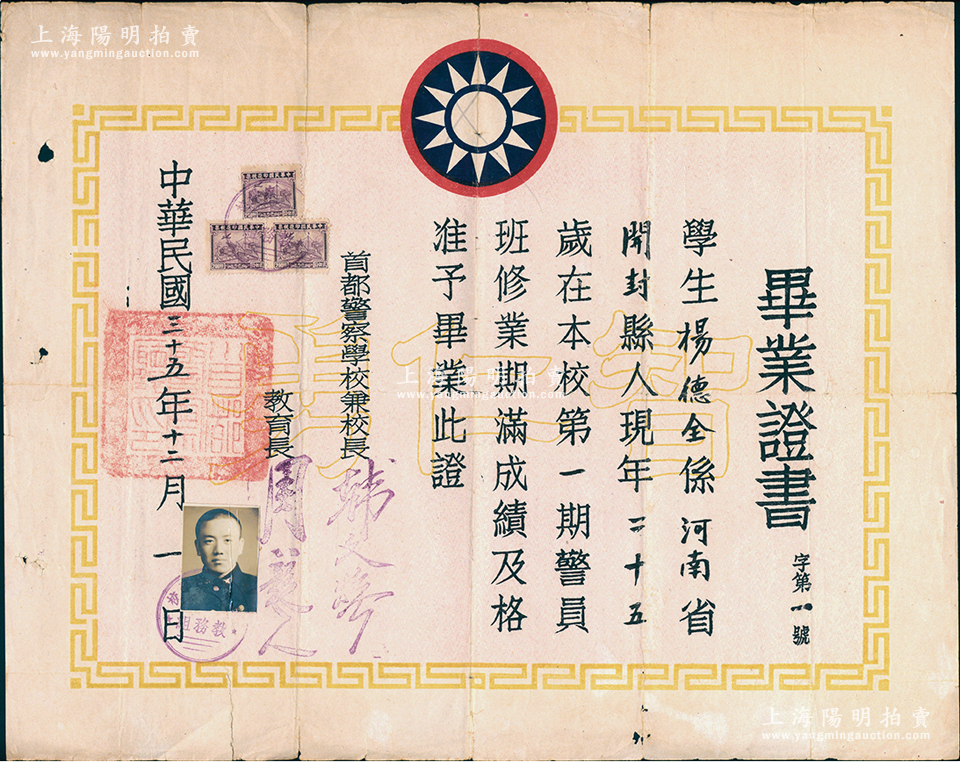 上海陽明拍賣
www.yangmingauction.com
畢業證書
字第 號
學生楊德全係河南省
開封縣人現年二十五
歲在本校第一期警員
班修業期滿成績及格
准予畢業此證
首都警察學校兼校長
教育長
中華民國三十五年十二月一日
智仁勇
中華民國印花稅票
中華民國印花稅票
中華民國印花稅票
教務組
上海陽明拍賣
www.yangmingauction.com
上海陽明拍賣
www.yangmingauction.com